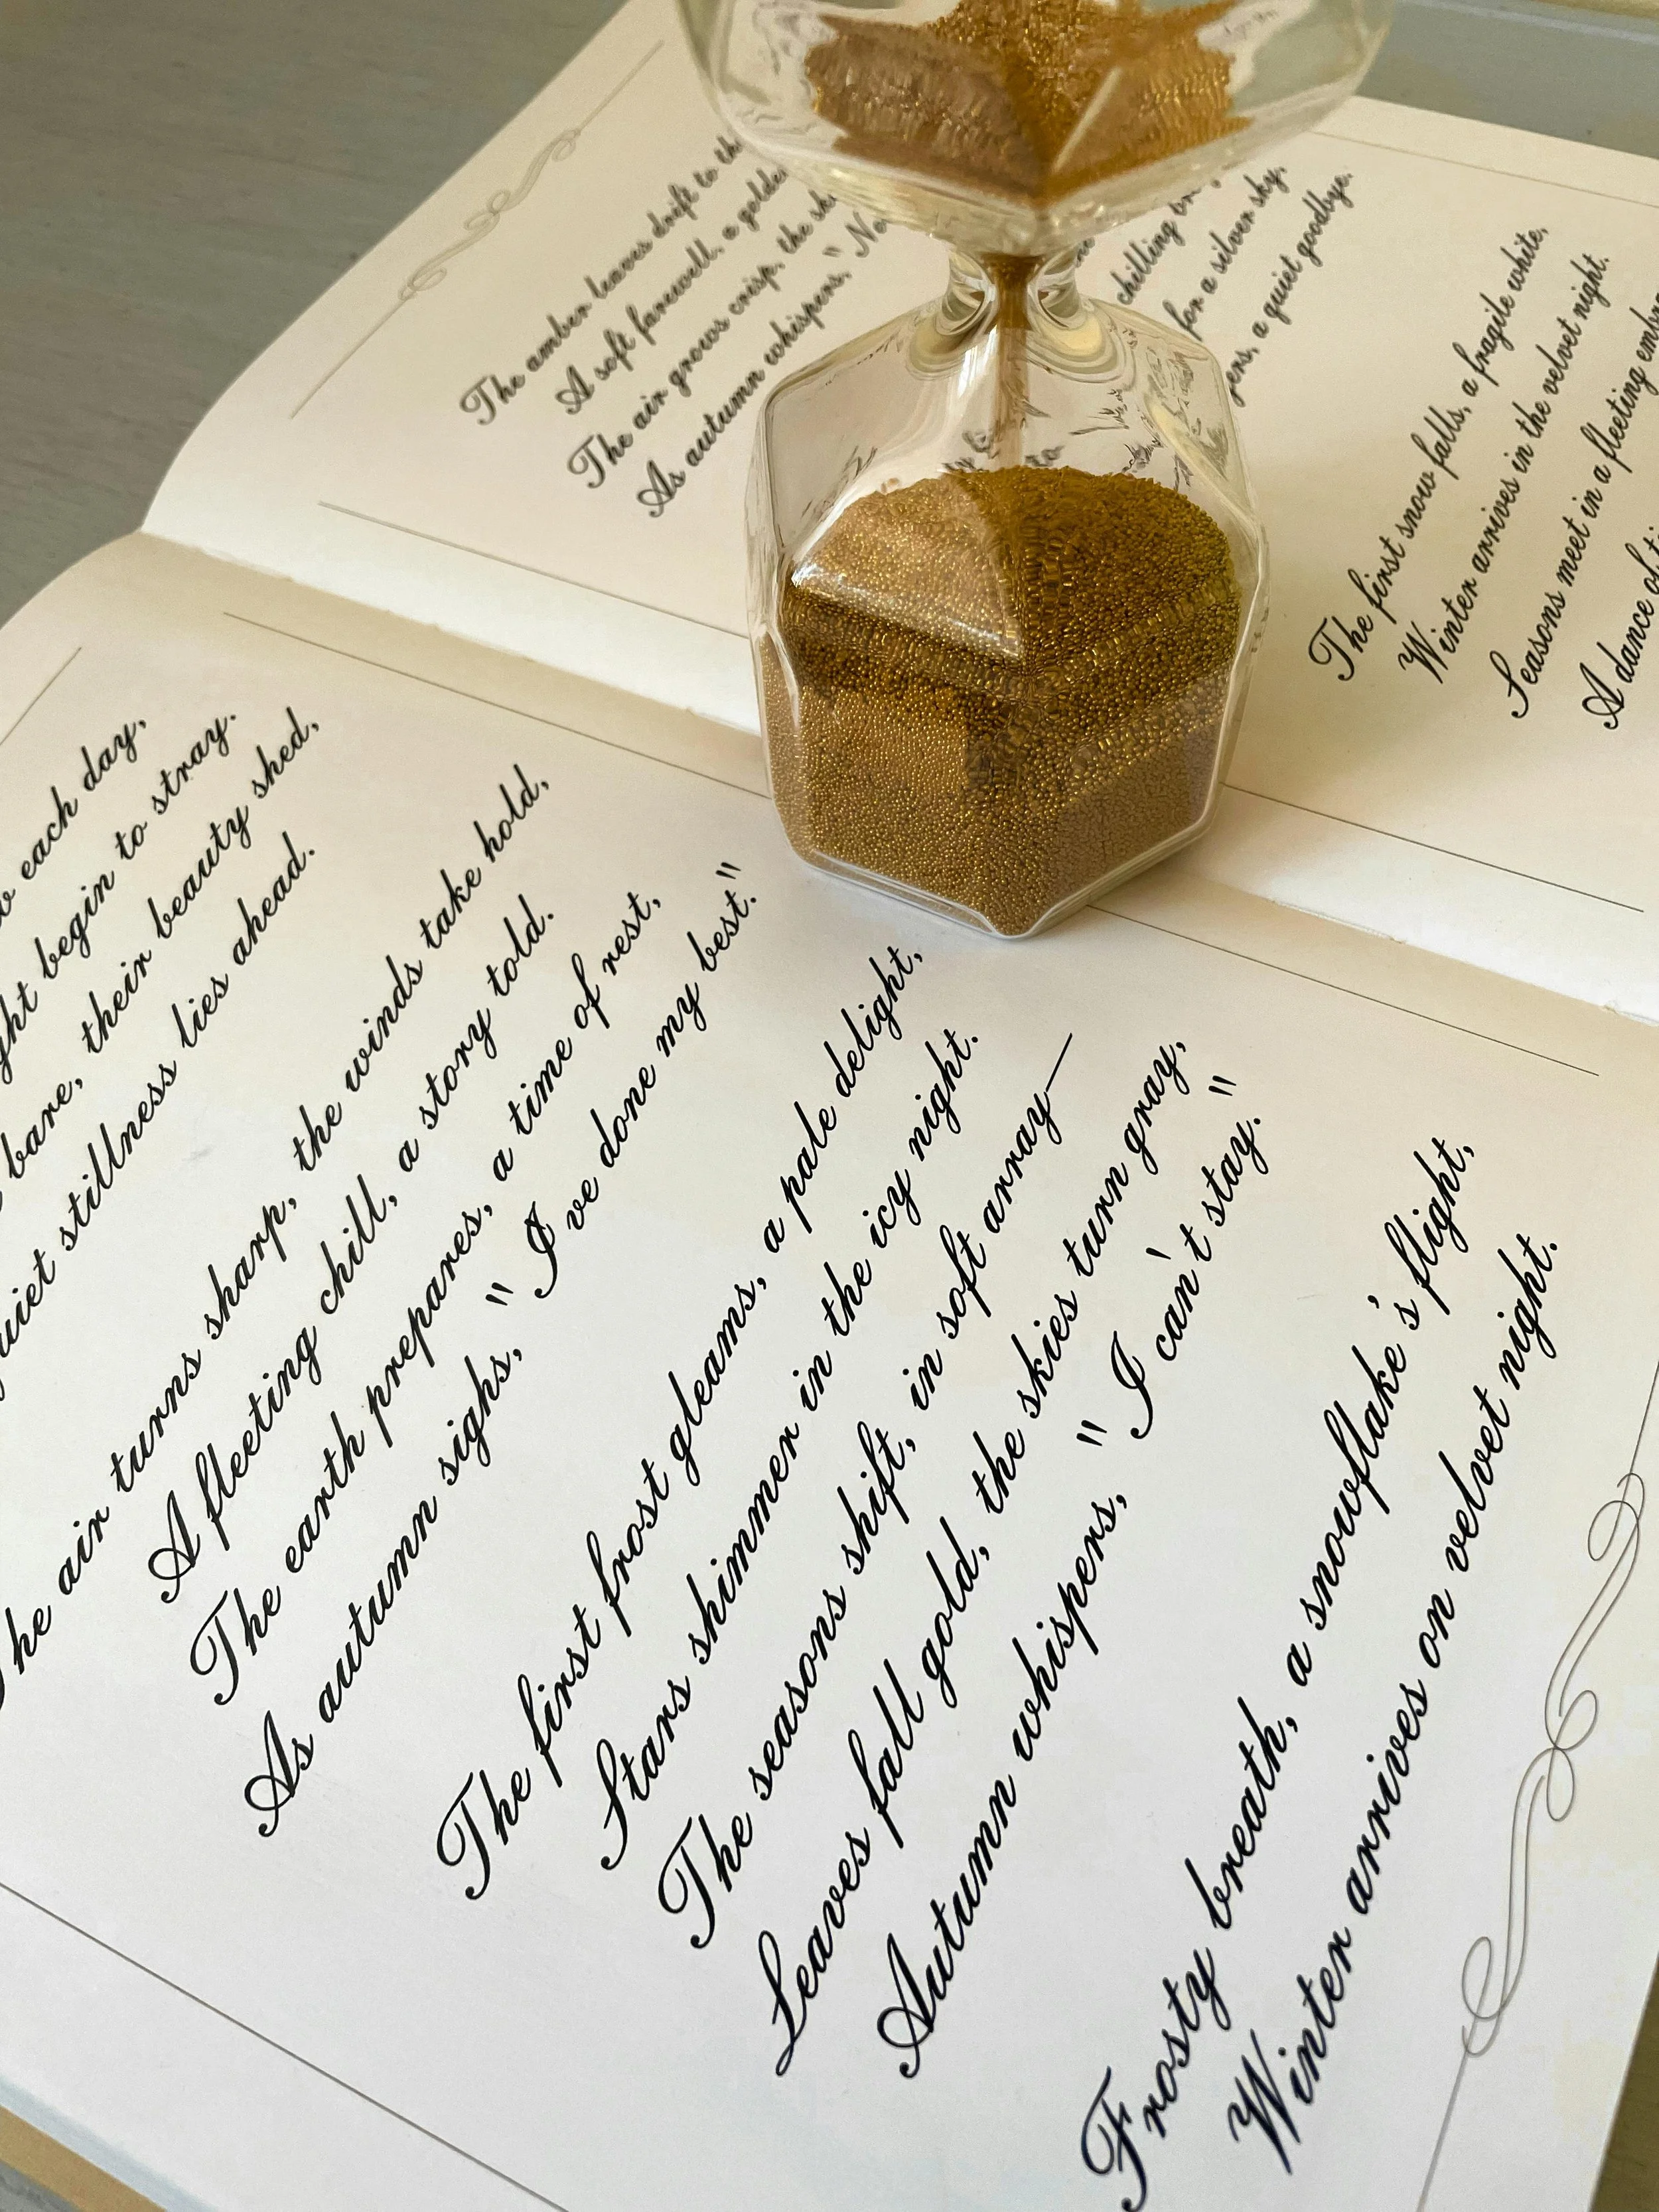 The amber leaves drift to
A soft farewell, a
The air grows crisp, the
As autumn whispers, "
chilling
for a silver sky,
a quiet goodbye.
The first snow falls, a fragile white,
Winter arrives in the velvet night.
Seasons meet in a fleeting
A dance of
each day,
begin to stray.
bare, their beauty shed,
stillness lies ahead.
The air turns sharp, the winds take hold,
A fleeting chill, a story told.
The earth prepares, a time of rest,
As autumn sighs, "I've done my best."
The first frost gleams, a pale delight,
Stars shimmer in the icy night.
The seasons shift, in soft array—
Leaves fall gold, the skies turn gray,
Autumn whispers, "I can't stay."
Frosty breath, a snowflake's flight,
Winter arrives on velvet night.